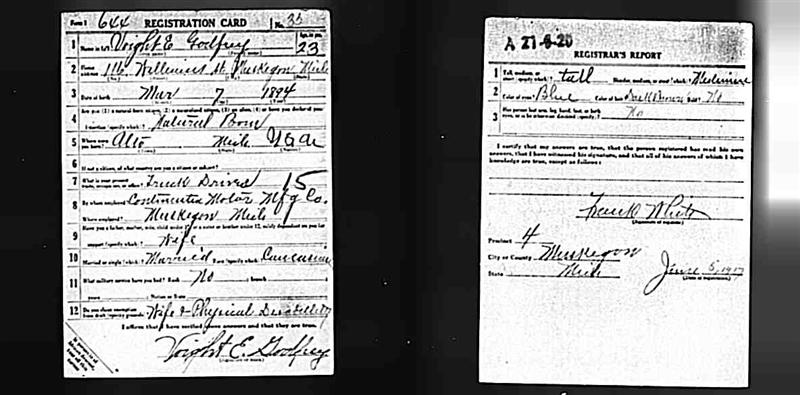 Form 1 644 REGISTRATION CARD No. 35
1 Name in full Voight E. Godfrey Age, in yrs. 23
2 Home address 116 Williams St. Muskegon Mich
3 Date of birth Mar 7 1894
4 Are you (1) a natural born citizen, (2) a naturalized citizen, (3) an alien, (4) or have you declared your
intention (specify which)? Natural Born
5 Where were you born? Alto Mich. USA
6 If not a citizen, of what country are you a citizen or subject?
7 What is your present trade, occupation, or office? Truck Driver 15
8 By whom employed? Continental Motor Mfg Co.
Where employed? Muskegon Mich
9 Have you a father, mother, wife, child under 12, or a sister or brother under 12, solely dependent on you for
support (specify which)? Wife
10 Married or single (which)? Married Race (specify which)? Caucasian
11 What military service have you had? Rank No branch
years Nation or State
12 Do you claim exemption from draft (specify grounds)? Wife & Physical Disability
I affirm that I have verified above answers and that they are true.
Voight E. Godfrey
A 21-6-20
REGISTRAR'S REPORT
1 Tall, medium, or short (specify which)? tall Slender, medium, or stout (which)? Medium
2 Color of eyes? Blue Color of hair? Dark Brown Bald? No
3 Has person lost arm, leg, hand, foot, or both eyes, or is he otherwise disabled (specify)? No
I certify that my answers are true, that the person registered has read his own
answers, that I have witnessed his signature, and that all of his answers of which I have
knowledge are true, except as follows:
Frank White
Precinct 4
City or County Muskegon
State Mich June 5, 1917